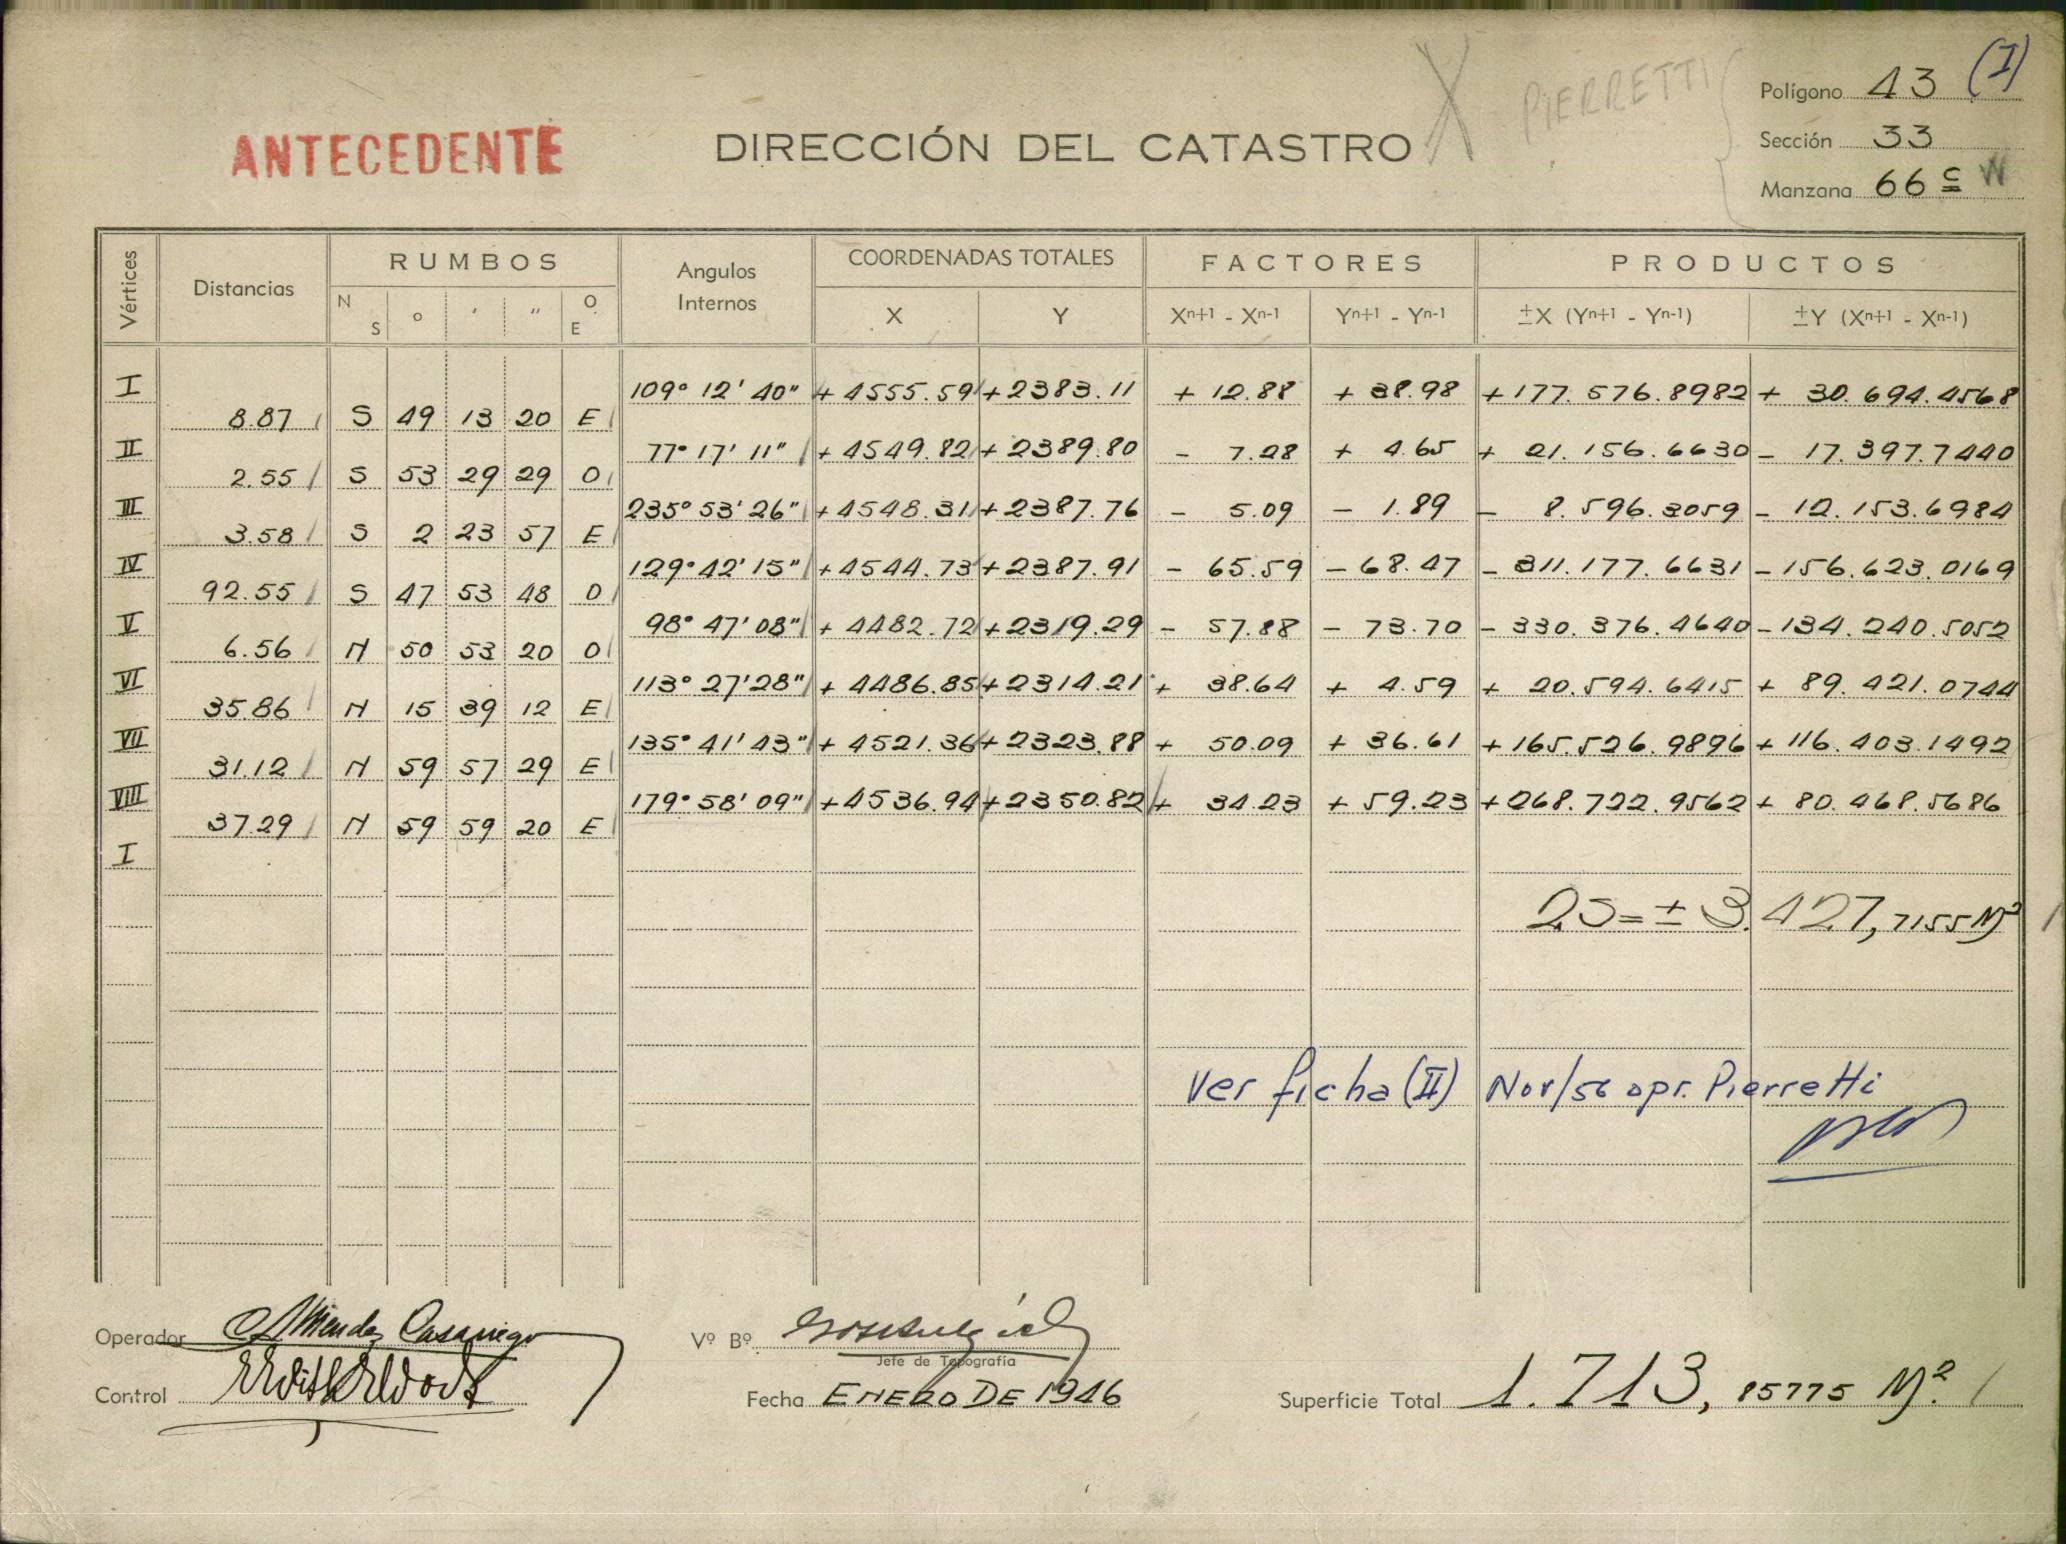 (I)
PIERRETTI
Polígono 43
ANTECEDENTE
DIRECCIÓN DEL CATASTRO
Sección 33
Manzana 66 c
Vértices
Distancias
RUMBOS
N S ° ' " O E
Angulos Internos
COORDENADAS TOTALES
X Y
FACTORES
Xn+1 - Xn-1 Yn+1 - Yn-1
PRODUCTOS
±X (Yn+1 - Yn-1) ±Y (Xn+1 - Xn-1)
I 109° 12' 40" + 4555.59 + 2383.11 + 12.88 + 38.98 + 177.576.8982 + 30.694.4568
8.87 S 49 13 20 E
II 77° 17' 11" + 4549.82 + 2389.80 - 7.28 + 4.65 + 21.156.6630 - 17.397.7440
2.55 S 53 29 29 O
III 235° 53' 26" + 4548.31 + 2387.76 - 5.09 - 1.89 - 8.596.3059 - 12.153.6984
3.58 S 2 23 57 E
IV 129° 42' 15" + 4544.73 + 2387.91 - 65.59 - 68.47 - 311.177.6631 - 156.623.0169
92.55 S 47 53 48 O
V 98° 47' 08" + 4482.72 + 2319.29 - 57.88 - 73.70 - 330.376.4640 - 134.240.5052
6.56 N 50 53 20 O
VI 113° 27' 28" + 4486.85 + 2314.21 + 38.64 + 4.59 + 20.594.6415 + 89.421.0744
35.86 N 15 39 12 E
VII 135° 41' 43" + 4521.36 + 2323.88 + 50.09 + 36.61 + 165.526.9896 + 116.403.1492
31.12 N 59 57 29 E
VIII 179° 58' 09" + 4536.94 + 2350.82 + 34.23 + 59.23 + 268.722.9562 + 80.468.5686
37.29 N 59 59 20 E
I
2S = ± 3.427,7155 M²
Ver ficha (II) Nov/56 opr. Pierretti
Operador Mendez Casariego
Vº Bº
Jefe de Topografía
Control
Fecha ENERO DE 1946
Superficie Total 1.713,85775 M².